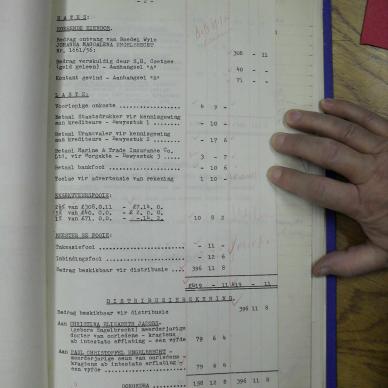 - 2 -
BATES:
ROERENDE EIENDOM.
Bedrag ontvang van Boedel Wyle
JOHANNA MAGDALENA ENGELBRECHT
Nr. 1661/56: 308 - 11
Bedrag verskuldig deur S.B. Coetsee
(geld geleen) - Aanhangsel "A" 40 - -
Kontant gevind - Aanhangsel "B" 71 - -
LASTE:
Voorlopige onkoste 4 7 -
Betaal Staatsdrukker vir kennisgewing
aan krediteure - Bewysstuk 1 - 10 -
Betaal Transvaler vir kennisgewing
aan krediteure - Bewysstuk 2 - 17 6
Betaal Marine & Trade Insurance Co.
Ltd. vir Borgakte - Bewysstuk 3 3 - 7
Betaal bankfooi - 10 6
Toelae vir advertensie van rekening 1 10 -
EKSEKUTEURSFOOIE:
10 8 2
MEESTER SE FOOIE:
Inkassiefooi - 11 -
Inbindingsfooi - 12 6
Bedrag beskikbaar vir distribusie 396 11 8
£419 - 11 £419 - 11
DISTRIBUSIEREKENING.
Bedrag beskikbaar vir distribusie 396 11 8
Aan CHRISTINA ELIZABETH JACOBS
(gebore Engelbrecht) meerderjarige
dogter van oorledene - kragtens
ab intestato erflating - een
vyfde 79 6 4
Aan PAUL CHRISTOFFEL ENGELBRECHT
meerderjarige seun van oorledene
- kragtens ab intestato erflating -
een vyfde 79 6 4
OORDRA 158 12 8 396 11 8